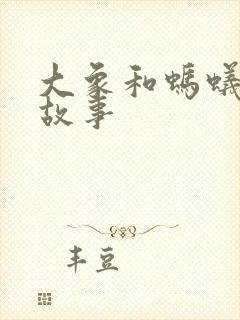 大象和螞蟻
故事
丰豆